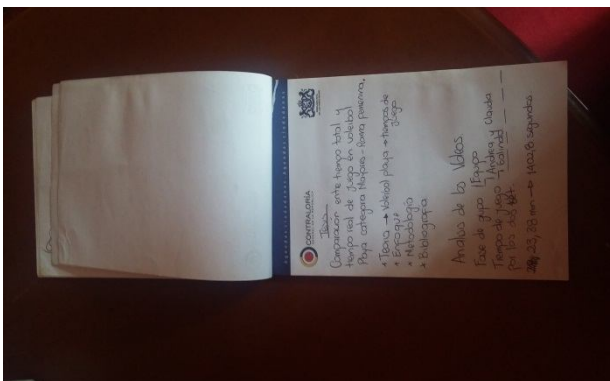 CONTRALORÍA
Tema
Comparación entre tiempo total y
tiempo real de juego en voleibol
Playa categoria Mayores - Rama femenina.
* Teoria → Voleibol playa → tiempos de
juego
* Enfoque
* Metodologia
* Bibliografia
Analisis de los Videos
Fase de grupo | Equipo
Tiempo de juego | Andrea y Claudia
por los dos Galindo
23,38 min →
segundos